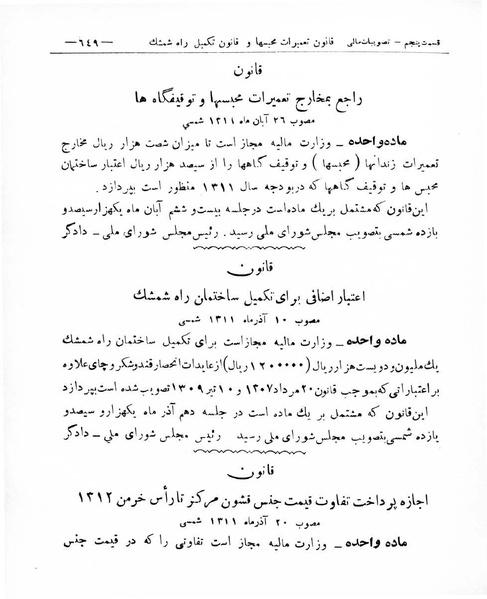 قسمت پنجم – تصویبات مالی   قانون تعمیرات محبسها و قانون تکمیل راه شمشك   —٦٤٩—
قانون
راجع بمخارج تعمیرات محبسها و توقیفگاه ها
مصوب ٢٦ آبان ماه ١٣١١ شمسی
ماده واحده – وزارت مالیه مجاز است تا میزان شصت هزار ریال مخارج
تعمیرات زندانها ( محبسها ) و توقیف گاهها را از سیصد هزار ریال اعتبار ساختمان
محبس ها و توقیف گاهها که در بودجه سال ١٣١١ منظور است بپردازد.
این قانون که مشتمل بر یك ماده است در جلسه بیست و ششم آبان ماه یکهزار سیصدو
یازده شمسی بتصویب مجلس شورای ملی رسید. رئیس مجلس شورای ملی – دادگر
قانون
اعتبار اضافی برای تکمیل ساختمان راه شمشك
مصوب ١٠ آذر ماه ١٣١١ شمسی
ماده واحده – وزارت مالیه مجاز است برای تکمیل ساختمان راه شمشك
یك ملیون و دویست هزار ریال (١٢٠٠٠٠٠ ریال) از عایدات انحصار قند و شکر و چای علاوه
بر اعتباراتی که بموجب قانون ٢٠ مرداد ١٣٠٧ و ١٠ تیر ١٣٠٩ تصویب شده است بپردازد
این قانون که مشتمل بر یك ماده است در جلسه دهم آذر ماه یکهزارو سیصدو
یازده شمسی بتصویب مجلس شورای ملی رسید   رئیس مجلس شورای ملی – دادگر
قانون
اجازه پرداخت تفاوت قیمت جنس قشون مرکز تا رأس خرمن ١٣١٢
مصوب ٢٠ آذر ماه ١٣١١ شمسی
ماده واحده – وزارت مالیه مجاز است تفاوتی را که در قیمت جنس